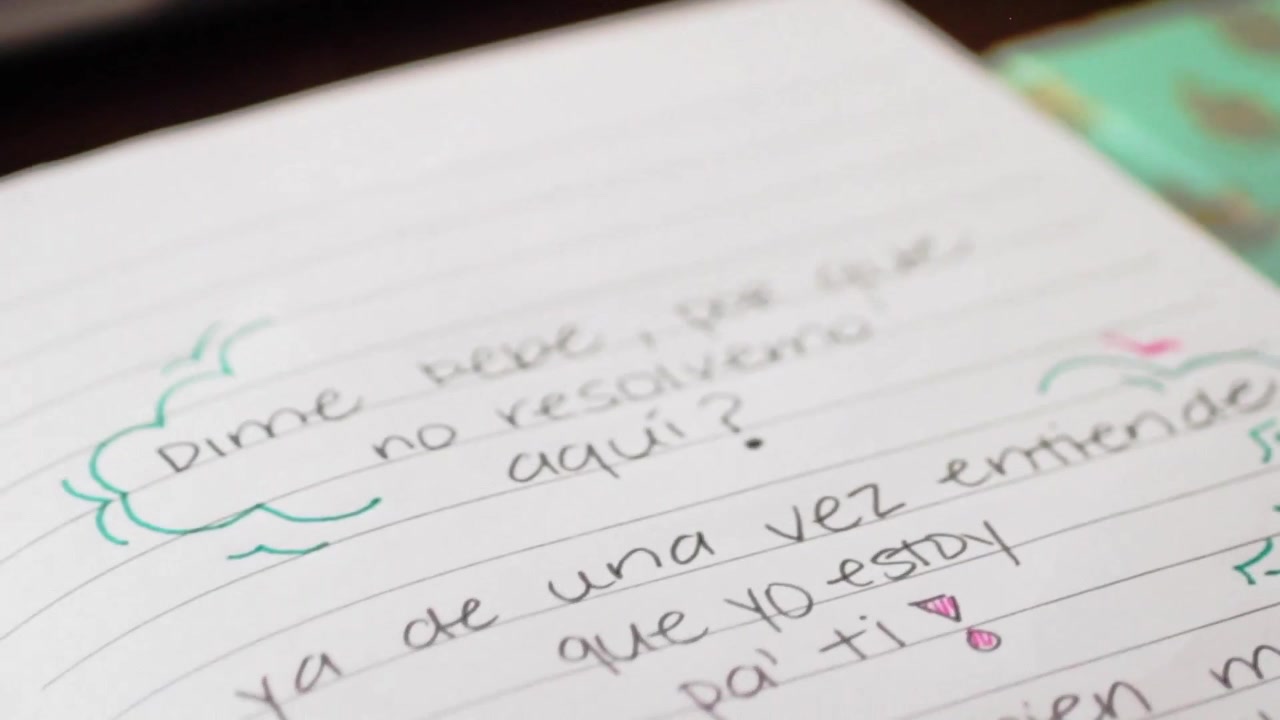 Dime bebe, por que
no resolvemo'
aquí?
ya de una vez entiende
que yo estoy
pa' ti!